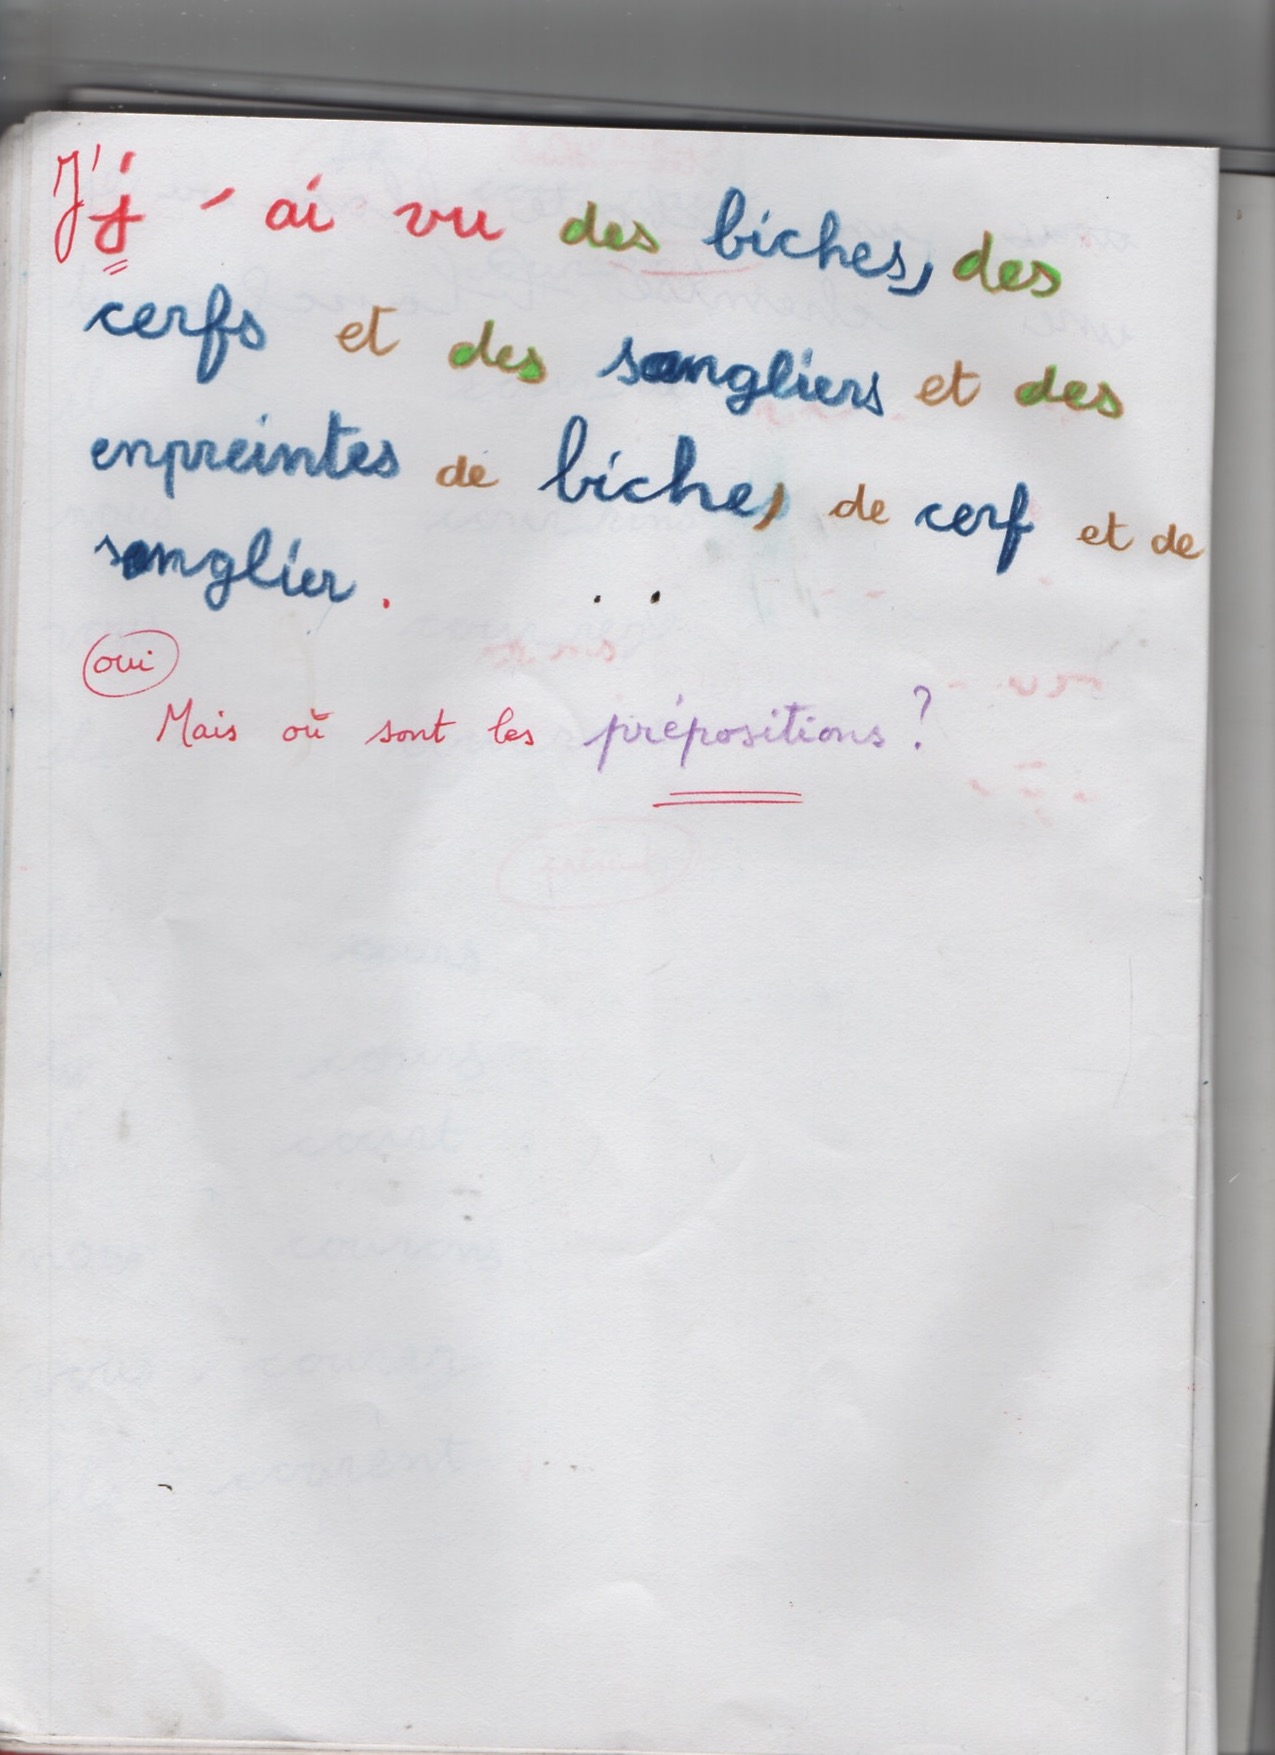 J' j ' ai vu des biches, des
cerfs et des sangliers et des
enpreintes de biche, de cerf et de
sanglier.
oui
Mais où sont les prépositions ?